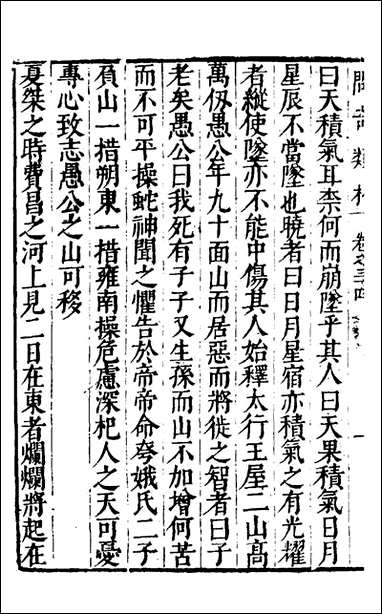 問奇類林 卷之三四
曰天積氣耳柰何而崩墜乎其人曰天果積氣日月
星辰不當墜也曉者曰日月星宿亦積氣之有光耀
者縱使墜亦不能中傷其人始釋太行王屋二山高
萬仭愚公年九十面山而居惡而將徙之智者曰子
老矣愚公曰我死有子子又生孫而山不加增何苦
而不可平操蛇神聞之懼告於帝帝命夸娥氏二子
負山一措朔東一措雍南操危慮深杞人之天可憂
專心致志愚公之山可移
夏桀之時費昌之河上見二日在東者爛爛將起在